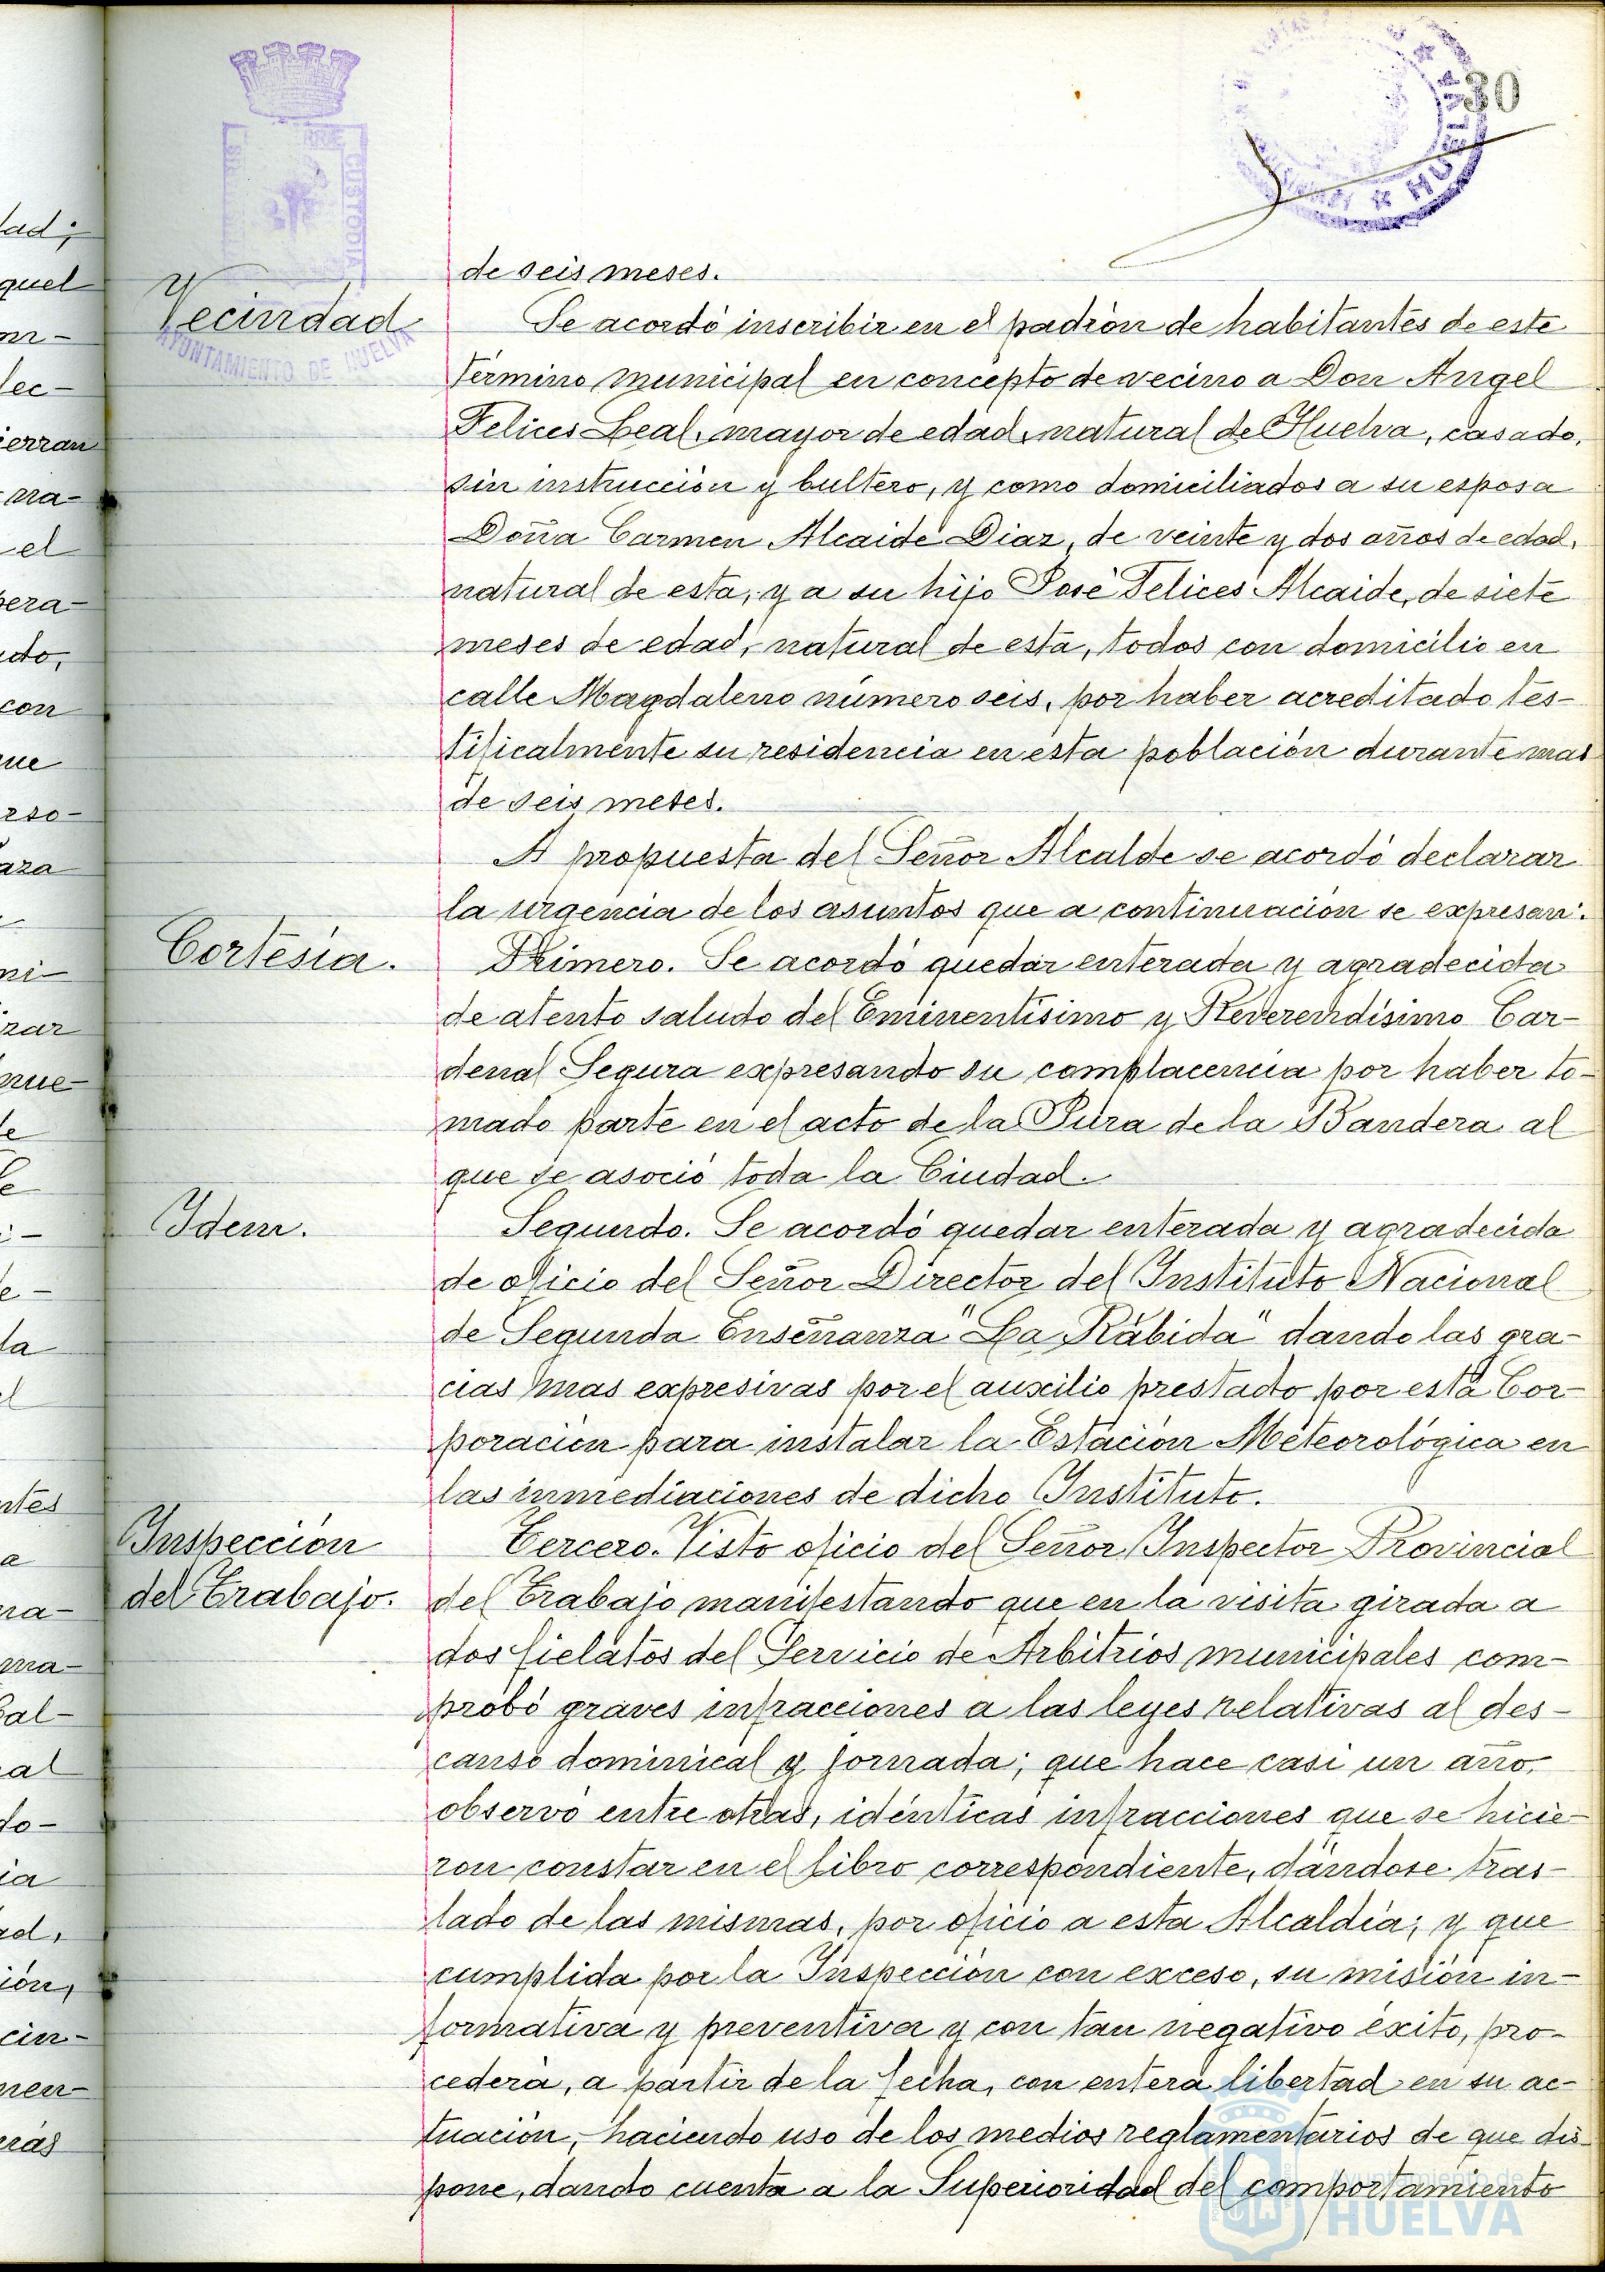 30
HUELVA
CUSTODIA
AYUNTAMIENTO DE HUELVA
de seis meses.
Vecindad
Se acordó inscribir en el padrón de habitantes de este
término municipal en concepto de vecino a Don Angel
Felices Leal, mayor de edad, natural de Huelva, casado,
sin instrucción y bultero, y como domiciliados a su esposa
Doña Carmen Alcaide Diaz, de veinte y dos años de edad,
natural de esta, y a su hijo José Felices Alcaide, de siete
meses de edad, natural de esta, todos con domicilio en
calle Magdaleno número seis, por haber acreditado tes-
tificalmente su residencia en esta población durante mas
de seis meses.
A propuesta del Señor Alcalde se acordó declarar
la urgencia de los asuntos que a continuación se expresan:
Cortesía.
Primero. Se acordó quedar enterada y agradecida
de atento saludo del Eminentísimo y Reverendísimo Car-
denal Segura expresando su complacencia por haber to-
mado parte en el acto de la Pura de la Bandera al
que se asoció toda la Ciudad.
Idem.
Segundo. Se acordó quedar enterada y agradecida
de oficio del Señor Director del Instituto Nacional
de Segunda Enseñanza "La Rábida" dando las gra-
cias mas expresivas por el auxilio prestado por esta Cor-
poración para instalar la Estación Meteorológica en
las inmediaciones de dicho Instituto.
Inspección
del Trabajo.
Tercero. Visto oficio del Señor Inspector Provincial
del Trabajo manifestando que en la visita girada a
dos fielatos del Servicio de Arbitrios municipales com-
probó graves infracciones a las leyes relativas al des-
canso dominical y jornada; que hace casi un año,
observó entre otras, idénticas infracciones que se hicie-
ron constar en el libro correspondiente, dándose tras-
lado de las mismas, por oficio a esta Alcaldía; y que
cumplida por la Inspección con exceso, su misión in-
formativa y preventiva y con tan negativo éxito, pro-
cederá, a partir de la fecha, con entera libertad en su ac-
tuación, haciendo uso de los medios reglamentarios de que dis-
pone, dando cuenta a la Superioridad del comportamiento
Ayuntamiento de
HUELVA